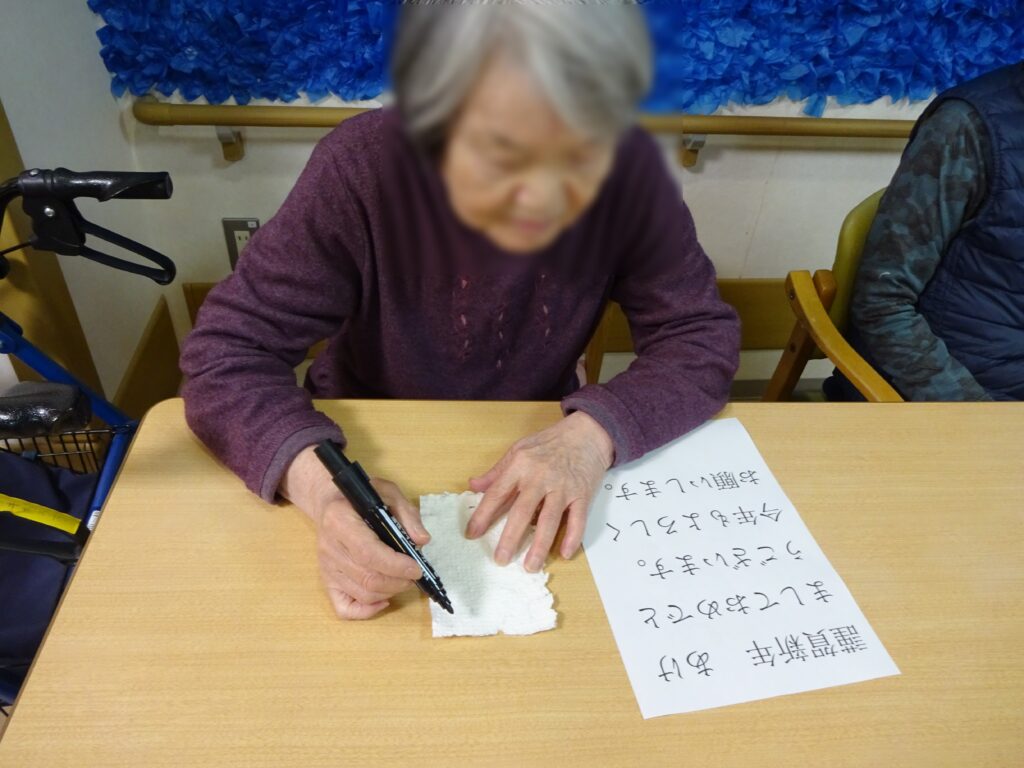 謹賀新年　あけ
ましておめでと
うございます。
今年もよろしく
お願いします。